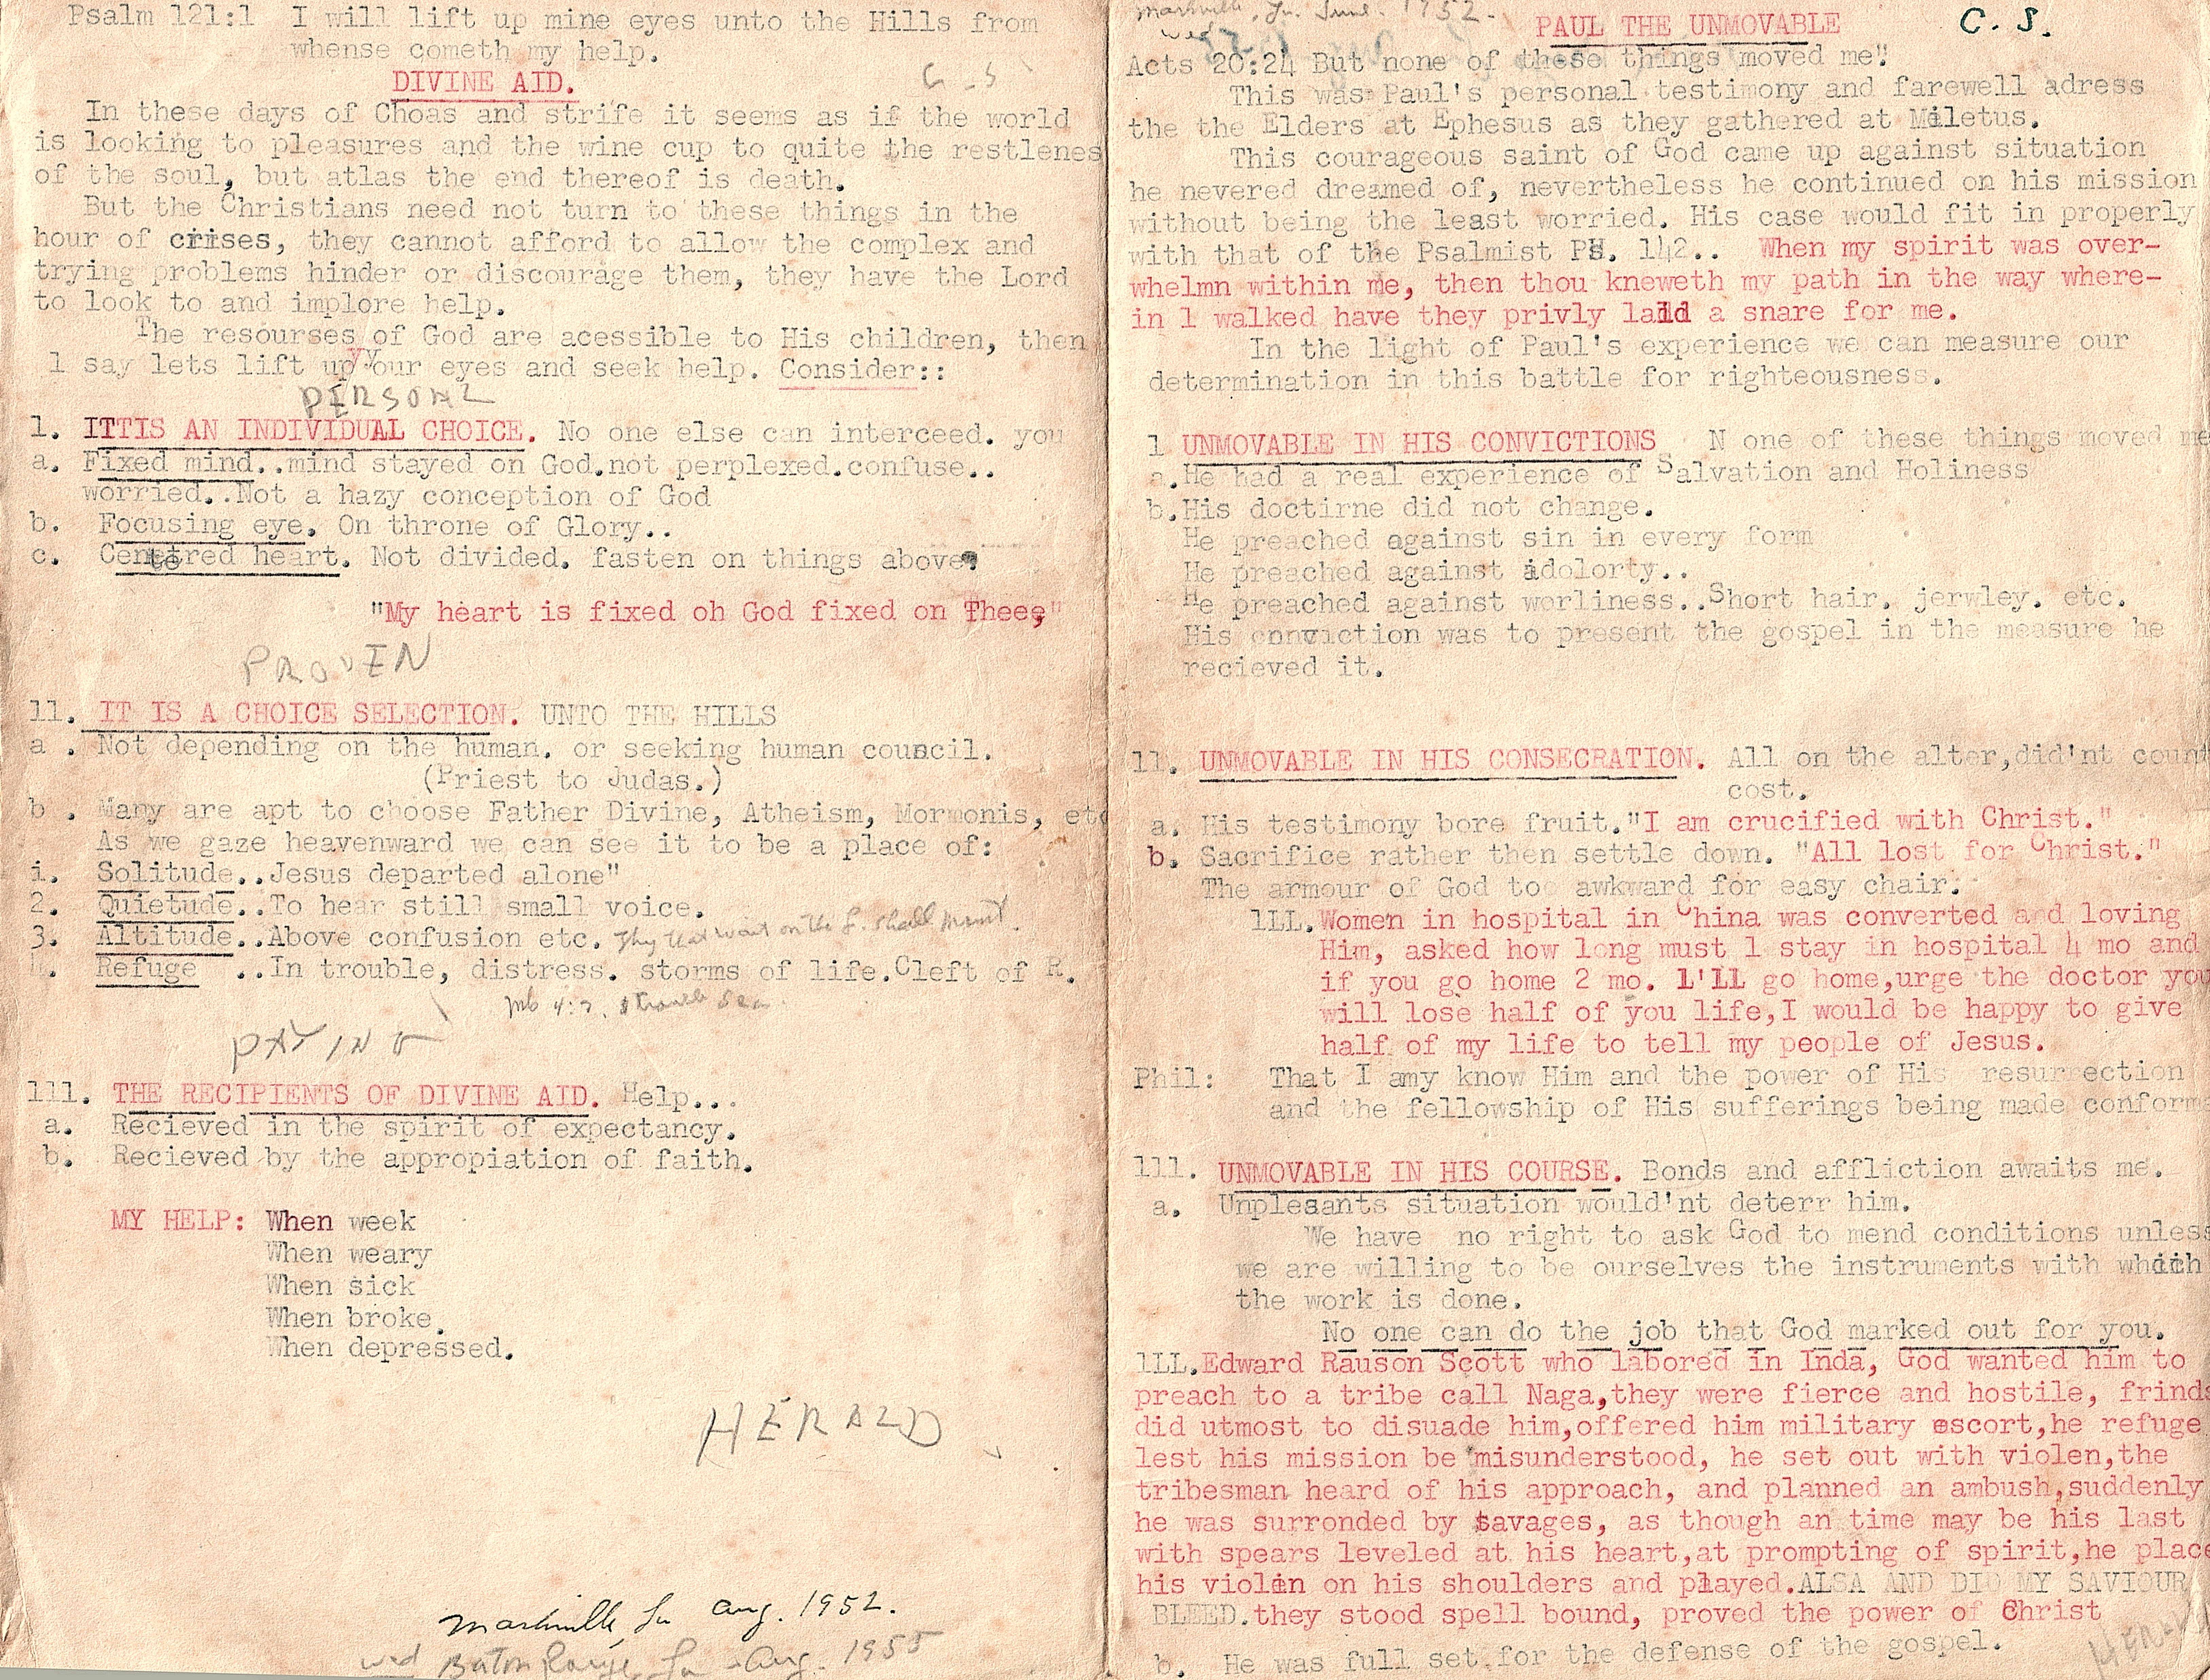 Psalm 121:1 I will lift up mine eyes unto the Hills from
whense cometh my help.
DIVINE AID.
In these days of Choas and strife it seems as if the world
is looking to pleasures and the wine cup to quite the restlenes
of the soul, but atlas the end thereof is death.
But the Christians need not turn to these things in the
hour of crises, they cannot afford to allow the complex and
trying problems hinder or discourage them, they have the Lord
to look to and implore help.
The resourses of God are acessible to His children, then
l say lets lift up your eyes and seek help. Consider::
PERSONL
l. ITTIS AN INDIVIDUAL CHOICE. No one else can interceed. you
a. Fixed mind..mind stayed on God.not perplexed.confuse..
worried..Not a hazy conception of God
b. Focusing eye. On throne of Glory..
c. Centred heart. Not divided. fasten on things above.
"My heart is fixed oh God fixed on Thee,"
PROVEN
ll. IT IS A CHOICE SELECTION. UNTO THE HILLS
a . Not depending on the human. or seeking human council.
(Priest to Judas.)
b . Many are apt to choose Father Divine, Atheism, Mormonis, etc
As we gaze heavenward we can see it to be a place of:
i. Solitude..Jesus departed alone"
2. Quietude..To hear still small voice.
3. Altitude..Above confusion etc. They that wait on the L. shall mount
4. Refuge ..In trouble, distress. storms of life.Cleft of R.
PAYING
lll. THE RECIPIENTS OF DIVINE AID. Help...
a. Recieved in the spirit of expectancy.
b. Recieved by the appropiation of faith.
MY HELP: When week
When weary
When sick
When broke.
When depressed.
HERALD
Marksville, La Aug. 1952.
wed Baton Rouge, La - Aug. 1955
Marksville, La. June. 1952.
wed
PAUL THE UNMOVABLE C. S.
Acts 20:24 But none of these things moved me"
This was Paul's personal testimony and farewell adress
the the Elders at Ephesus as they gathered at Miletus.
This courageous saint of God came up against situation
he nevered dreamed of, nevertheless he continued on his mission
without being the least worried. His case would fit in properly
with that of the Psalmist PS. 142.. When my spirit was over-
whelmn within me, then thou kneweth my path in the way where-
in l walked have they privly laid a snare for me.
In the light of Paul's experience we can measure our
determination in this battle for righteousness.
l UNMOVABLE IN HIS CONVICTIONS N one of these things moved me
a.He had a real experience of Salvation and Holiness
b.His doctirne did not change.
He preached against sin in every form
He preached against idolorty..
He preached against worliness..Short hair. jerwley. etc.
His conviction was to present the gospel in the measure he
recieved it.
ll. UNMOVABLE IN HIS CONSECRATION. All on the alter,did'nt count
cost.
a. His testimony bore fruit."I am crucified with Christ."
b. Sacrifice rather then settle down. "All lost for Christ."
The armour of God too awkward for easy chair.
lLL.Women in hospital in China was converted and loving
Him, asked how long must l stay in hospital 4 mo and
if you go home 2 mo. L'LL go home,urge the doctor you
will lose half of you life,I would be happy to give
half of my life to tell my people of Jesus.
Phil: That I amy know Him and the power of His resurrection
and the fellowship of His sufferings being made conform
lll. UNMOVABLE IN HIS COURSE. Bonds and affliction awaits me.
a. Unplesants situation would'nt deterr him.
We have no right to ask God to mend conditions unless
we are willing to be ourselves the instruments with which
the work is done.
No one can do the job that God marked out for you.
lLL.Edward Rauson Scott who labored in Inda, God wanted him to
preach to a tribe call Naga,they were fierce and hostile, frinds
did utmost to disuade him,offered him military escort,he refuge
lest his mission be misunderstood, he set out with violen,the
tribesman heard of his approach, and planned an ambush,suddenly
he was surronded by savages, as though an time may be his last
with spears leveled at his heart,at prompting of spirit,he place
his violin on his shoulders and played.ALSA AND DID MY SAVIOUR
BLEED.they stood spell bound, proved the power of Christ
b. He was full set for the defense of the gospel.